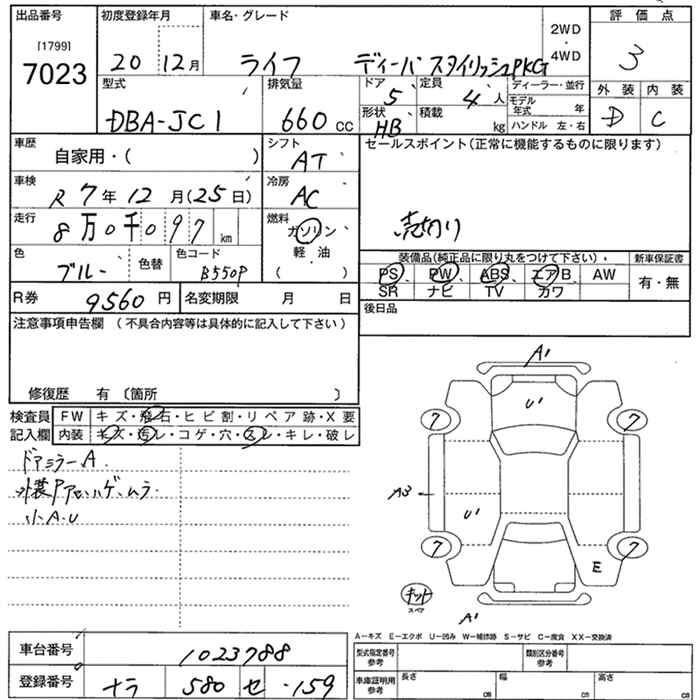 出品番号 初度登録年月 車名・グレード 2WD ・ 4WD 評価点
[1799]
7023 20 12月 ライフ ディーバ スタイリッシュPKG 3
型式 排気量 ドア 5 定員 4人 ディーラー・並行 外装 内装
DBA-JC1 660cc 形状 HB 積載 kg モデル年式 年 D C
ハンドル 左・右
車歴 自家用・( ) シフト AT セールスポイント(正常に機能するものに限ります)
車検 R7年12月(25日) 冷房 AC
走行 8万0千097km 燃料 ガソリン 売切り
軽・油
色 ブルー 色替 色コード B550P ( ) 装備品(純正品に限り丸をつけて下さい) 新車保証書
PS PW ABS エアB AW 有・無
R券 9560円 名変期限 月 日 SR ナビ TV カワ
注意事項申告欄 (不具合内容等は具体的に記入して下さい) 後日品
修復歴 有 〔箇所 〕
検査員 FW キズ・飛石・ヒビ割・リペア跡・X要
記入欄 内装 キズ・汚レ・コゲ・穴・スレ・キレ・破レ
ドアミラーA
外装Pアセ.ハゲ.ムラ
小A.U
A1
U1
7 7
A3
U1
7 7
E
キット
スペア
A1
A−キズ E−エクボ U−凹み W−補修跡 S−サビ C−腐食 XX−交換済
車台番号 1023788 型式指定番号 参考 類別区分番号 参考
登録番号 ナラ 580 せ ・159 車庫証明用 参考 長さ cm 幅 cm 高さ cm